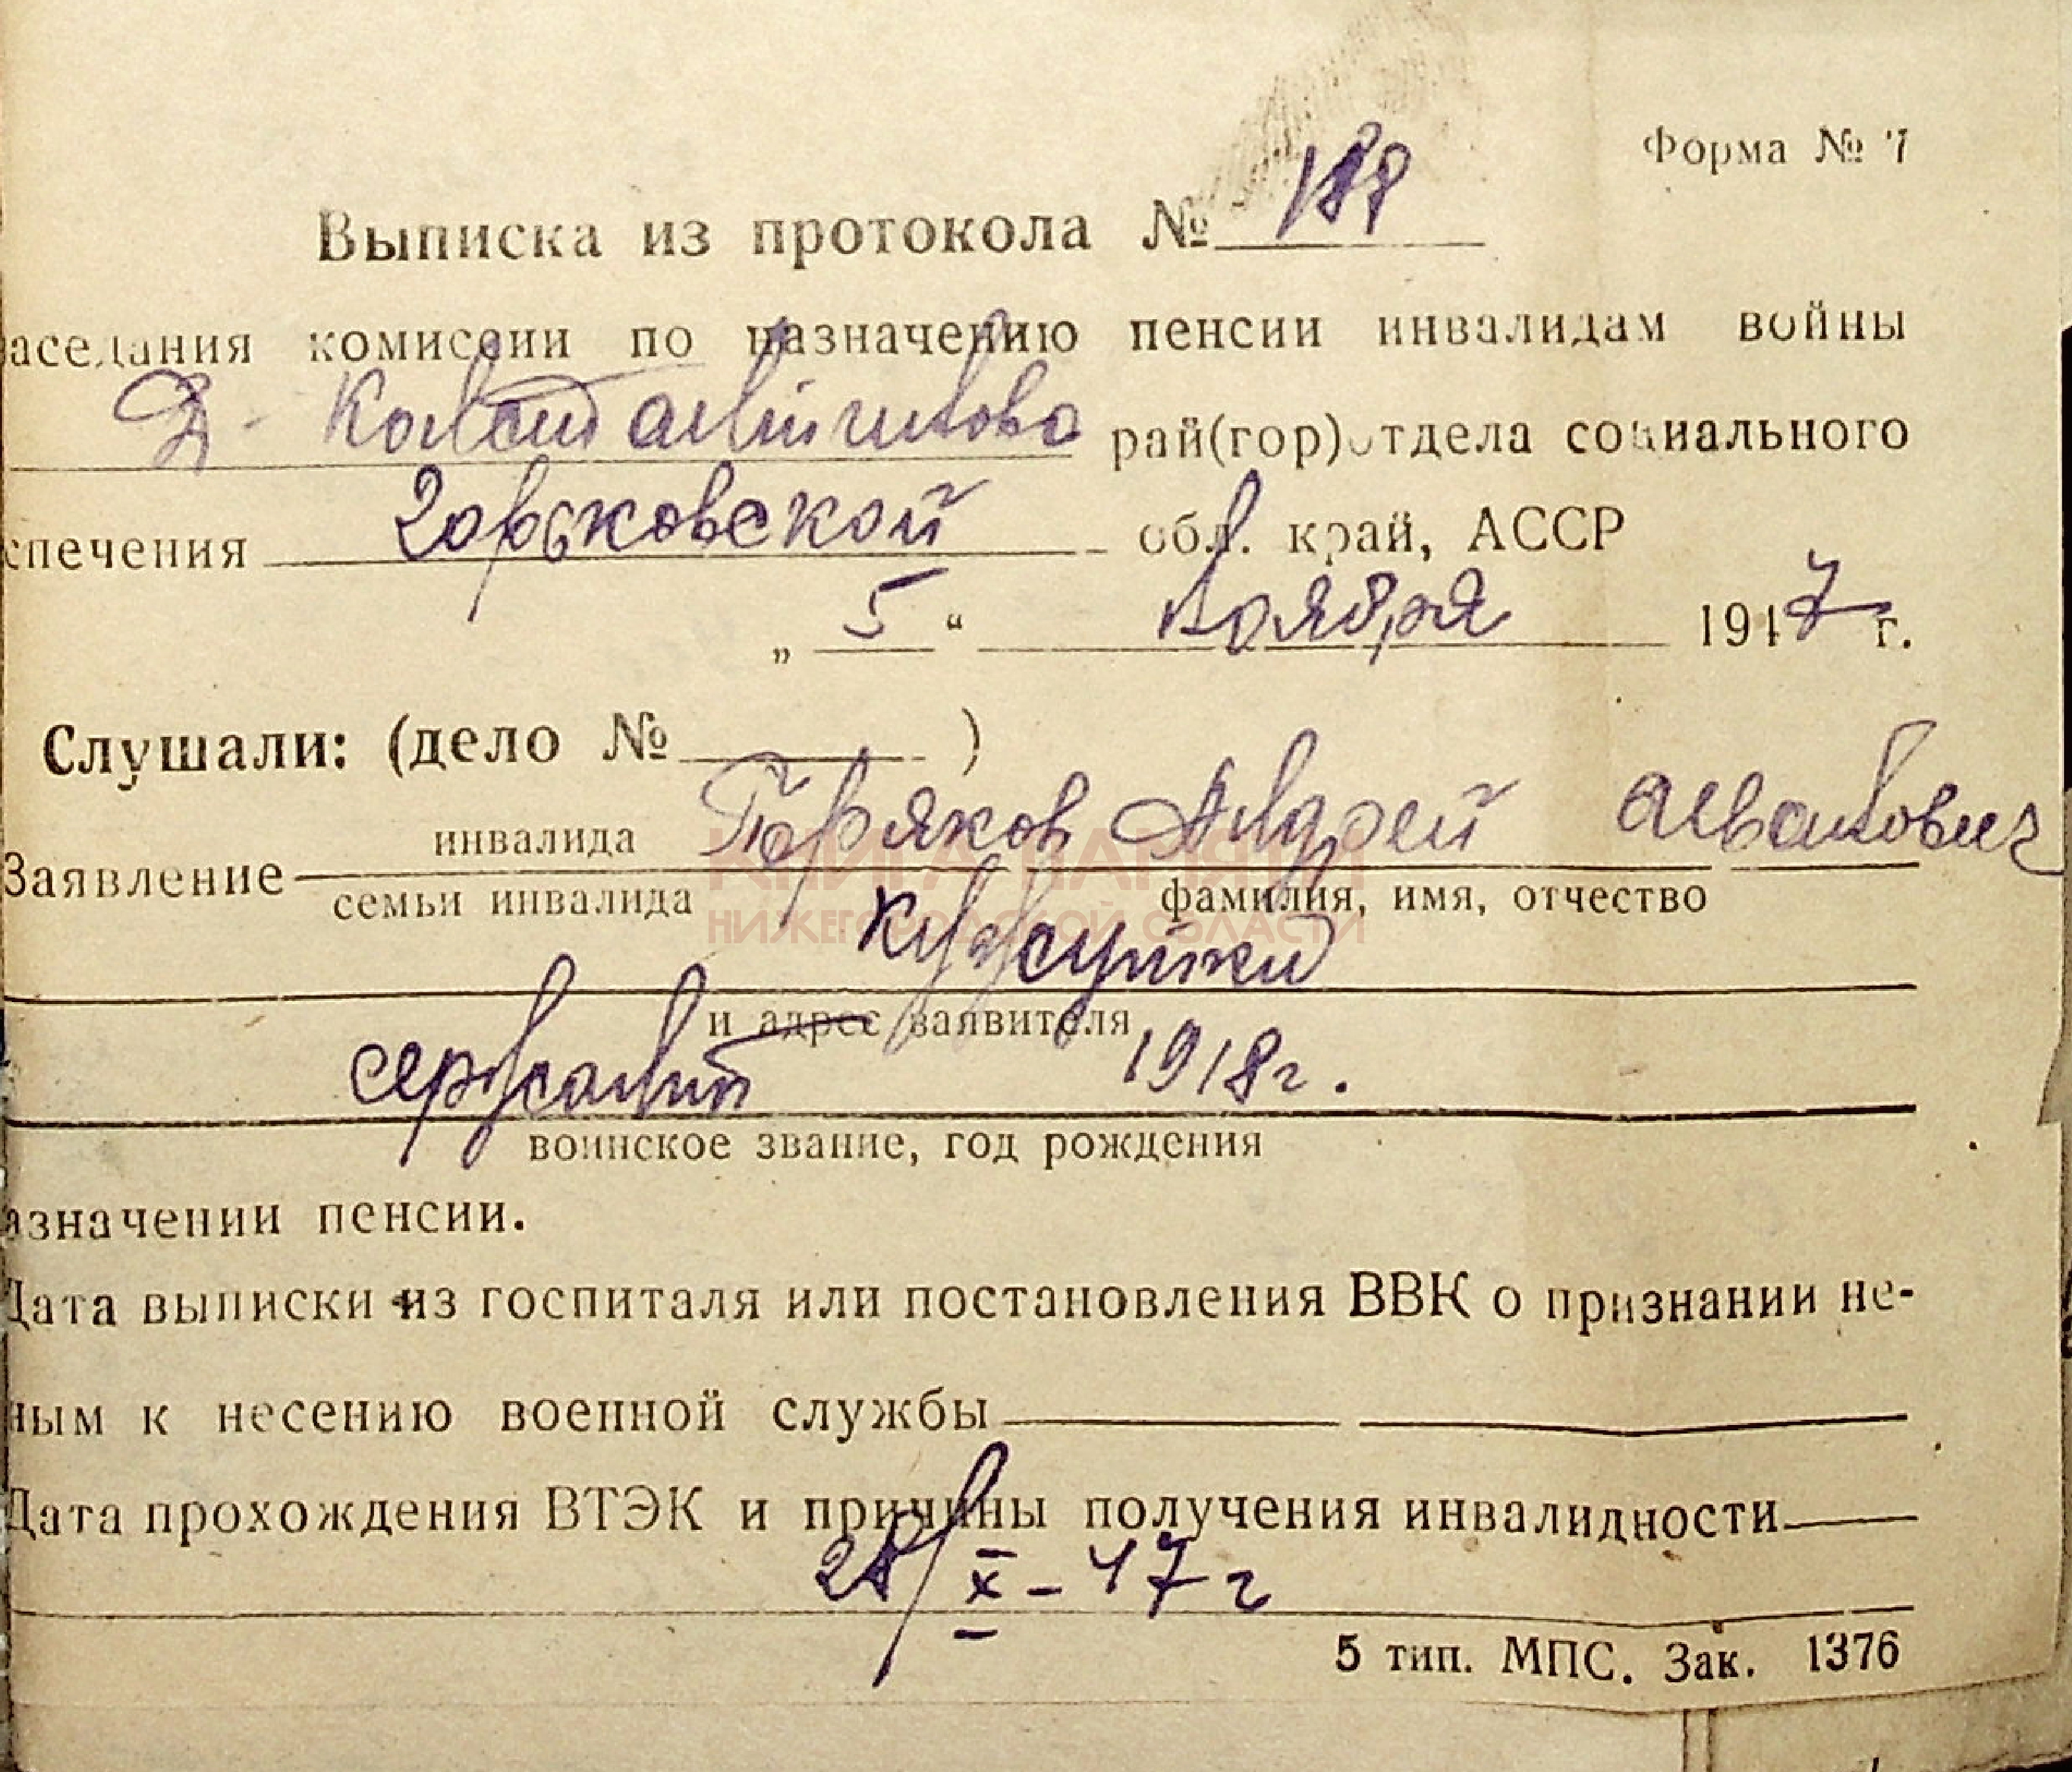 Форма № 7
Выписка из протокола № 188
аседания комиссии по назначению пенсии инвалидам войны
Д- Константиново рай(гор)отдела социального
спечения Горьковской обл. край, АССР
„ 5 “ ноября 1947 г.
Слушали: (дело № )
инвалида Андрей Иванович
Заявление
семьи инвалида фамилия, имя, отчество
КНИГА ПАМЯТИ
НИЖЕГОРОДСКОЙ ОБЛАСТИ
и адрес заявителя
сержант 1918 г.
воинское звание, год рождения
азначении пенсии.
Дата выписки из госпиталя или постановления ВВК о признании не-
ным к несению военной службы
Дата прохождения ВТЭК и причины получения инвалидности
28/X-47 г
5 тип. МПС. Зак. 1376